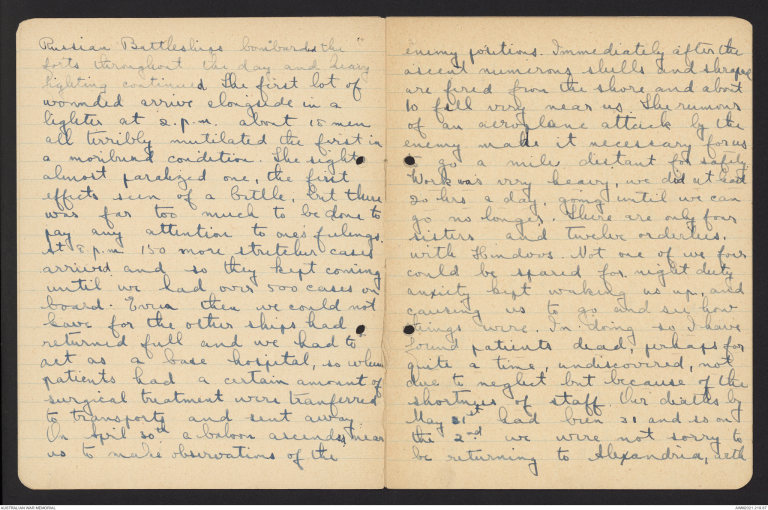 Russian Battleships bombarded the
forts throughout the day and heavy
fighting continued. The first lot of
wounded arrive alongside in a
lighter at 2.p.m. about 10 men
all terribly mutilated the first in
a moribund condition. The sight
almost paralized one, the first
effects seen of a battle. But there
was far too much to be done to
pay any attention to one's feelings.
At 8 p.m. 150 more stretcher cases
arrived and so they kept coming
until we had over 500 cases on
board. Even then we could not
leave for the other ships had
returned full and we had to
act as a base hospital, so when
patients had a certain amount of
surgical treatment were tranferred
to transports and sent away.
On April 30th a baloon ascends near
us to make observations of the
enemy positions. Immediately after the
ascent numerous shells and shrapnel
are fired from the shore and about
10 fall very near us. The rumour
of an aeroplane attack by the
enemy made it necessary for us
to go a mile distant for safety.
Work was very heavy, we did at least
20 hrs a day, going until we can
go no longer. There are only four
sisters and twelve orderlies,
with Hindoos. Not one of we four
could be spared for night duty
anxiety kept waking us up, and
causing us to go and see how
things were. In doing so I have
found patients dead, perhaps for
quite a time, undiscovered, not
due to neglect but because of the
shortness of staff. Our deaths by
May 1st had been 31 and so on
the 2nd we were not sorry to
be returning to Alexandria, with
AUSTRALIAN WAR MEMORIAL